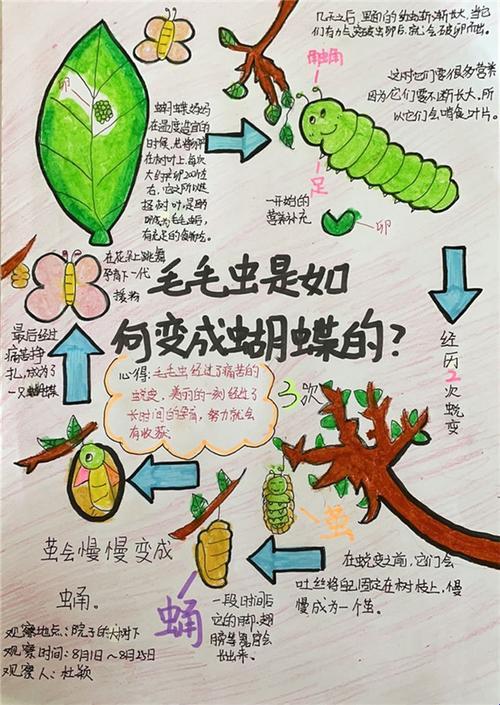 几天之后,里面的幼虫渐渐长大,当它
们有力气突破虫卵后,就会破卵而出。
卵
蝴蝶妈妈
在温度适宜的
时候,
在树叶上,每次
大约产卵200个左
右,它之所以选
择树叶,是因为
毛毛虫后,
有充足的食物吃。
触角
足
这时它们要很多营养
因为它们要不断长大,所
以它们会啃食叶片。
一开始的
营养补充
卵
在花朵上跳舞
孕育下一代
授粉
毛毛虫是如
何变成蝴蝶的?
经历2次蜕变
最后经过
痛苦挣
扎,成为了
一只蝴蝶
心得:毛毛虫经过了痛苦的
蜕变,美丽的一刻经过了
长时间的等待,努力就会
有收获。
3次
茧
茧会慢慢变成
蛹。
蛹
一段时间后
它的脚、翅
膀等器官会
长出来。
在蜕变之前,它们会
吐丝将自己固定在树枝上,慢
慢成为一个茧。
观察地点:院子的大树下
观察时间:8月1日~8月25日
观察人:杜颖